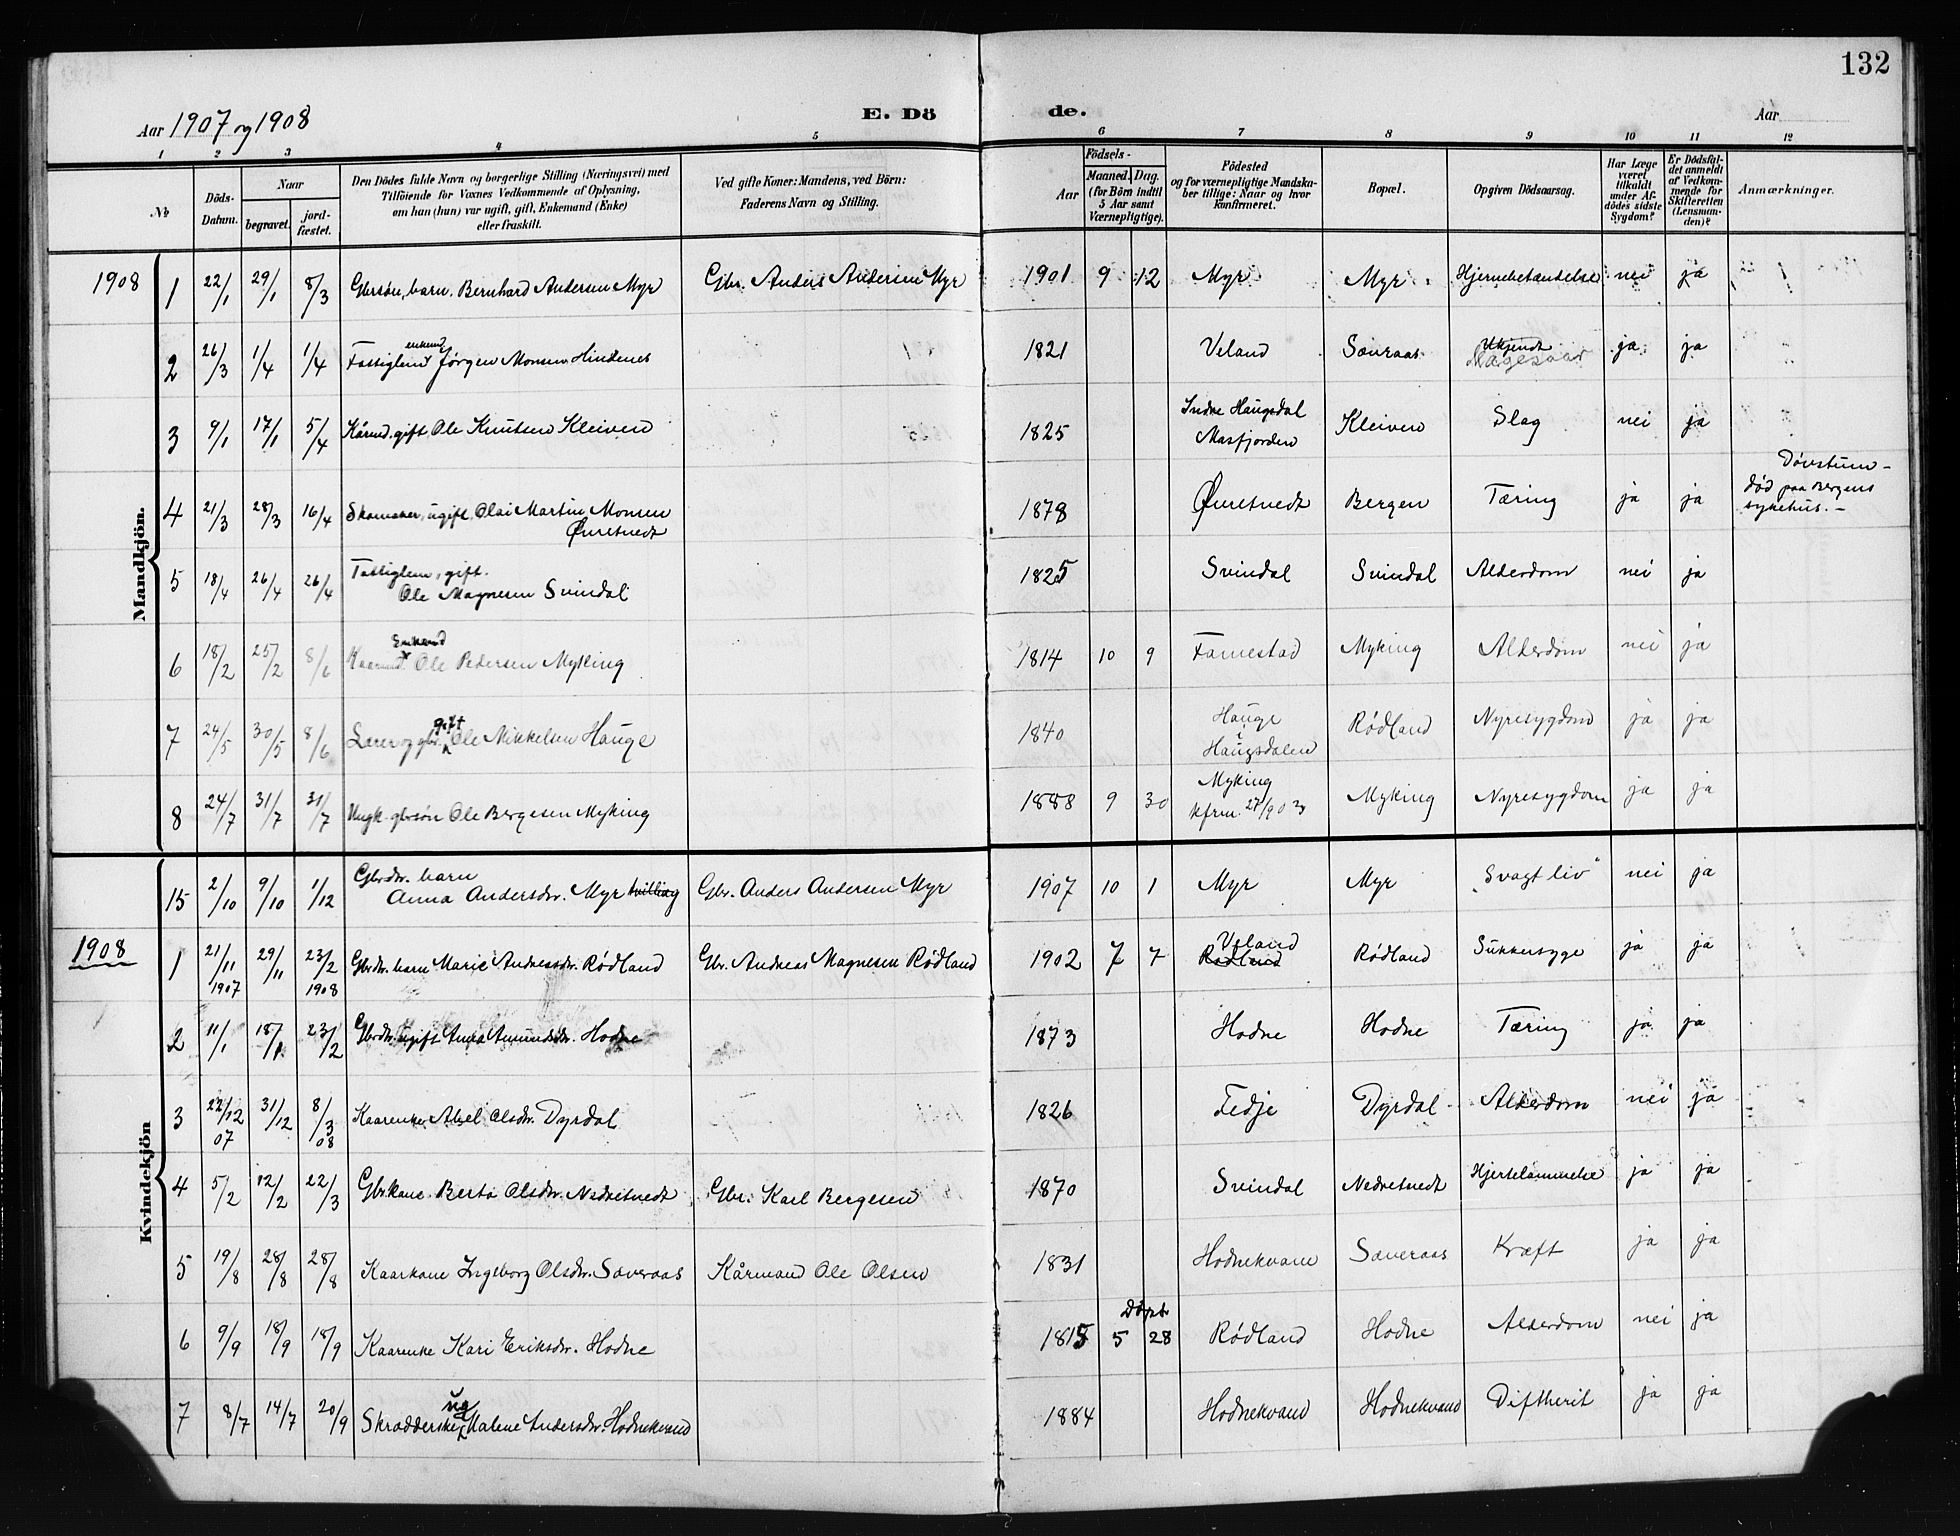 132
Aar 1907 og 1908
E. Dö de.
Aar
1 2 3 4 5 6 7 8 9 10 11 12
No
Döds-Datum.
Naar
begravet.
jord-fæstet.
Den Dödes fulde Navn og borgerlige Stilling (Næringsvei) med
Tilföiende for Voxnes Vedkommende af Oplysning,
om han (hun) var ugift, gift, Enkemand (Enke)
eller fraskilt.
Ved gifte Koner: Mandens, ved Börn:
Faderens Navn og Stilling.
Födsels-
Aar
Maaned. Dag.
(for Börn indtil
5 Aar samt
Værnepligtige).
Födested
og for værnepligtige Mandska-
ber tillige: Naar og hvor
konfirmeret.
Bopæl.
Opgiven Dödsaarsag.
Har Læge
været
tilkaldt
under Af-
dödes sidste
Sygdom?
Er Dödsfal-
det anmeldt
af Vedkom-
mende for
Skifteretten
(Lensman-
den)?
Anmærkninger.
Mandkjön.
1908 1 22/1 29/1 8/3 Gbrsøn, barn, Bernhard Andersen Myr Gbr. Anders Andersen Myr 1901 9 12 Myr Myr Hjernebetændelse nei ja
2 26/3 1/4 1/4 Fattiglem enkem. Jørgen Monsen Hindenes 1821 Veland Sæveraas Ukjendt ja ja
3 9/1 17/1 5/4 Kårmd. gift Ole Knutsen Kleiven 1825 Indre Haugsdal Masfjorden Kleiven Slag nei ja
4 21/3 28/3 16/4 Skomaker, ugift, Olai Martin Monsen Øvretvedt 1878 Øvretvedt Bergen Tæring ja ja Døvstum-
død paa Bergens
sykehus.-
5 18/4 26/4 26/4 Fattiglem, gift. Ole Magnesen Svindal 1825 Svindal Svindal Alderdom nei ja
6 18/2 25/2 8/6 Kaarmd Enkemd Ole Pedersen Myking 1814 10 9 Fammestad Myking Alderdom nei ja
7 24/5 30/5 8/6 Lærer og gbr. gift Ole Mikkelsen Hauge 1840 Hauge i Haugsdalen Rødland Nyresygdom ja ja
8 24/7 31/7 31/7 Ungk. gbrsøn Ole Bergesen Myking 1888 9 30 Myking kfrm. 27/9 03 Myking Nyresygdom ja ja
Kvindekjön
15 2/10 9/10 1/12 Gbrdtr. barn Anna Andersdtr. Myr tvilling Gbr. Anders Andersen Myr 1907 10 1 Myr Myr „Svagt liv“ nei ja
1908 1 21/11 1907 29/11 23/2 1908 Gbrdtr. barn Marie Andreasdtr. Rødland Gbr. Andreas Magnesen Rødland 1902 7 7 Veland Rødland Rødland Sukkersyge ja ja
2 11/1 18/1 23/2 Gbrdtr. ugift Anna Amundsdtr. Hodne 1873 Hodne Hodne Tæring ja ja
3 22/12 07 31/12 8/3 08 Kaarenke Absel Olsdtr. Dyrdal 1826 Fedje Dyrdal Alderdom nei ja
4 5/2 12/2 22/3 Gbrkone Berta Olsdtr. Nedretvedt Gbr. Karl Bergesen 1870 Svindal Nedretvedt Hjertelammelse ja ja
5 19/8 28/8 28/8 Kaarkone Ingeborg Olsdtr. Sæveraas Kårmand Ole Olsen 1831 Hodnekvam Sæveraas Kræft ja ja
6 9/9 18/9 18/9 Kaarenke Kari Eriksdtr. Hodne 1815 Døpt 5 28 Rødland Hodne Alderdom nei ja
7 8/7 14/7 20/9 Skrædderske ug Malene Andersdtr. Hodnekvand 1884 Hodnekvand Hodnekvand Diftherit ja ja